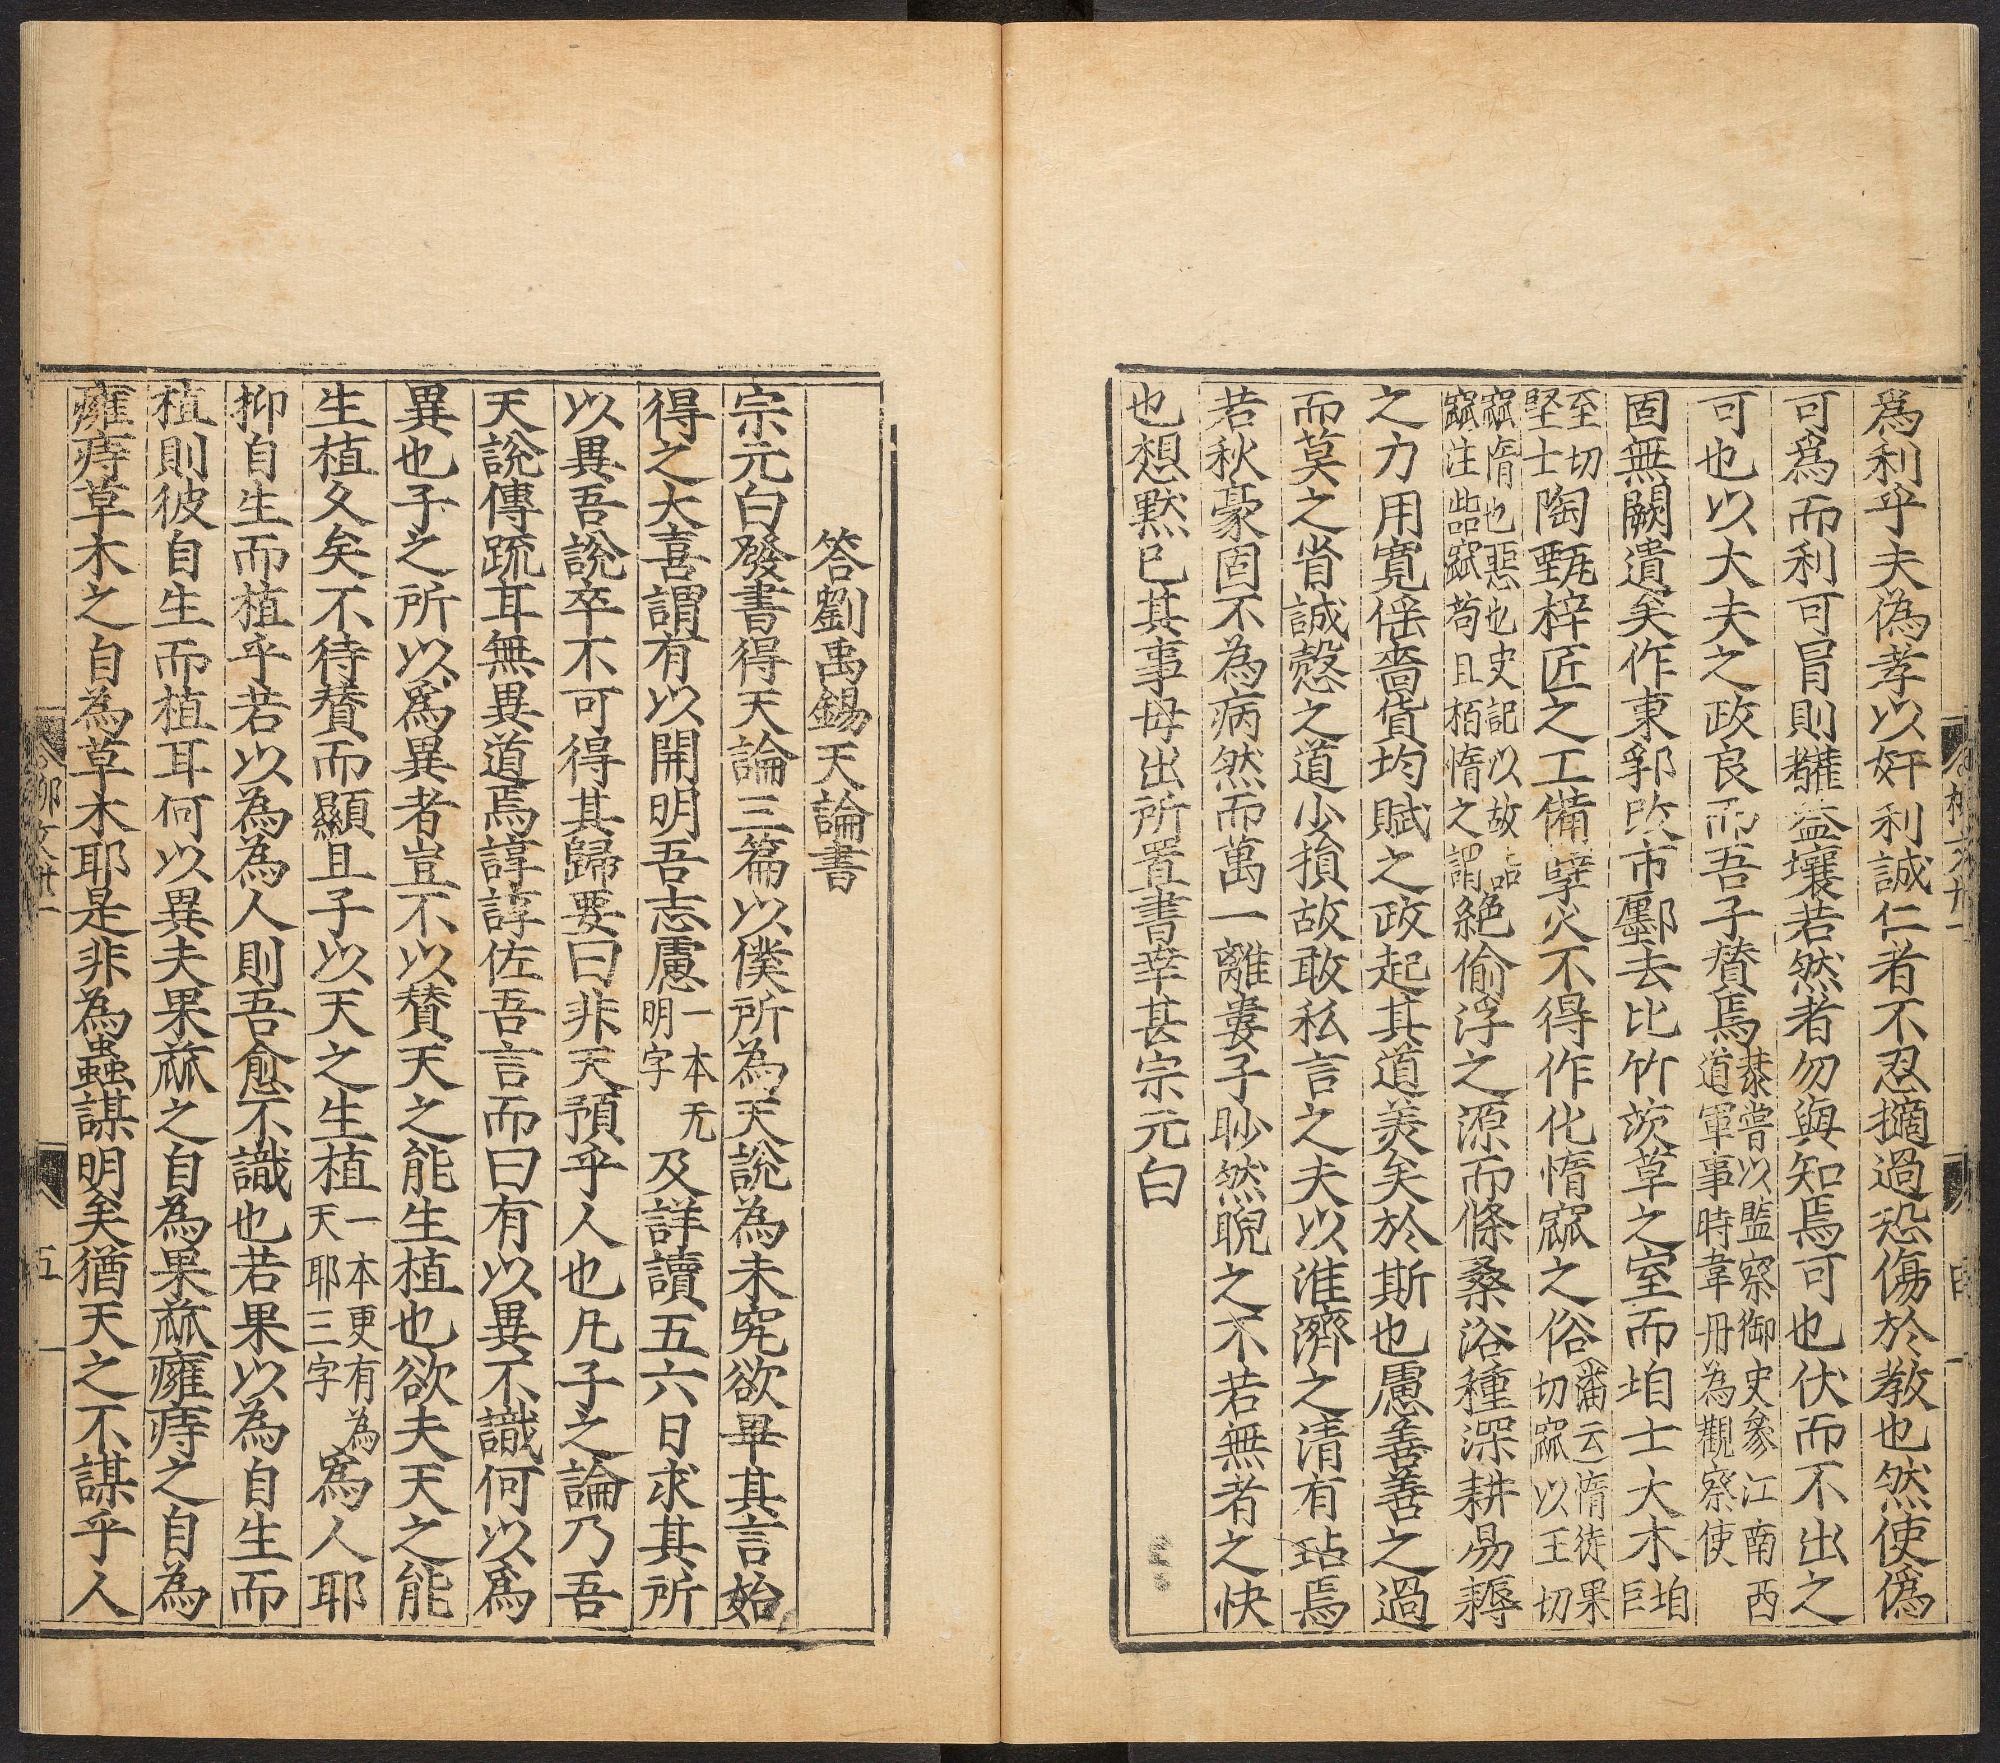 爲利乎夫偽孝以奸利誠仁者不忍擿過恐傷於教也然使僞
可爲而利可冒則蠹益壤若然者勿與知焉可也伏而不出之
可也以大夫之政良而吾子贊焉恭嘗以監察御史參江南西道軍事時韋丹為觀察使
固無闕遺矣作東郛改市鄽去比竹茨草之室而垍士大木垍巨
至切堅士陶甄梓匠之工備孽火不得作化惰窳之俗潘云惰徒果切窳以主切
窳惰也惡也史記以故呰窳注呰窳苟且栢惰之謂絶偷浮之源而條桑浴種深耕易耨
之力用寛徭嗇貨均賦之政起其道美矣於斯也慮善善之過
而莫之省誠慤之道少損故敢私言之夫以淮濟之清有玷焉
若秋豪固不為病然而萬一離婁子眇然睨之不若無者之快
也想默已其事毋出所置書幸甚宗元白
答劉禹錫天論書
宗元白發書得天論三篇以僕所為天說為未究欲畢其言始
得之大喜謂有以開明吾志慮一本无明字及詳讀五六日求其所
以異吾說卒不可得其歸要曰非天預乎人也凡子之論乃吾
天說傳疏耳無異道焉諄諄佐吾言而曰有以異不識何以爲
異也子之所以爲異者豈不以贊天之能生植也欲夫天之能
生植久矣不待贊而顯且子以天之生植一本更有為天耶三字爲人耶
抑自生而植乎若以為為人則吾愈不識也若果以為自生而
植則彼自生而植耳何以異夫果蓏之自為果蓏癰痔之自為
癰痔草木之自為草木耶是非為蟲謀明矣猶天之不謀乎人
柳文卅一
五